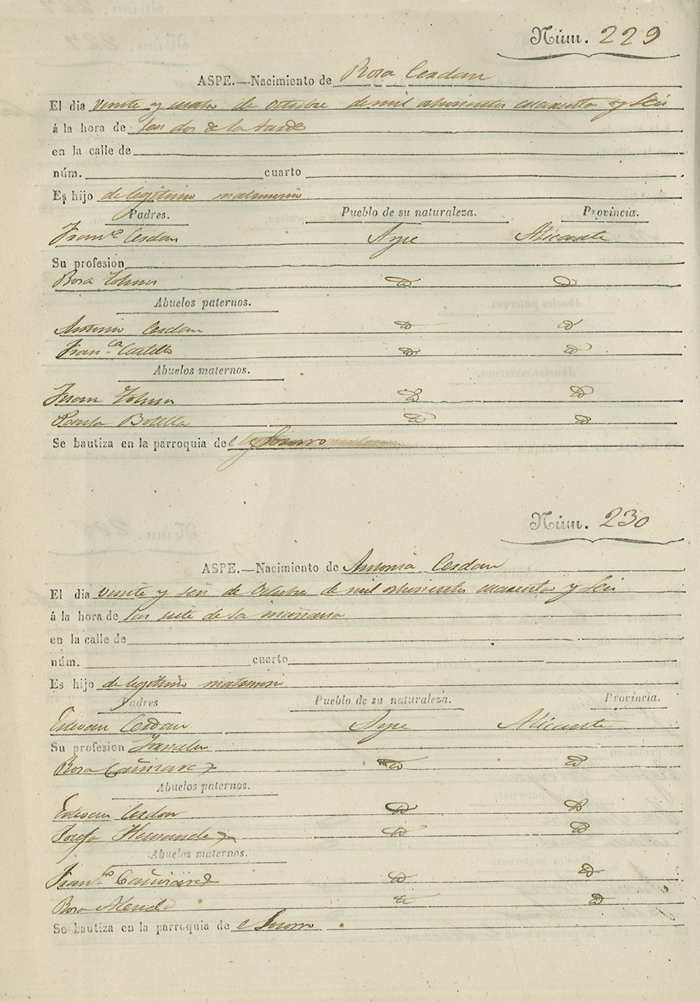 Núm. 229
ASPE.—Nacimiento de Rosa Cerdan
El dia veinte y cuatro de Octubre de mil ochocientos cuarenta y seis
á la hora de las dos de la tarde
en la calle de
núm. cuarto
Es hijo de legitimo matrimonio
Padres. Pueblo de su naturaleza. Provincia.
Franco Cerdan Aspe Alicante
Su profesion
Rosa D D
Abuelos paternos.
Antonio Cerdan D D
Franca D D
Abuelos maternos.
Juan D D
Botella D D
Se bautiza en la parroquia de el Socorro
Núm. 230
ASPE.—Nacimiento de Antonia Cerdan
El dia veinte y seis de Octubre de mil ochocientos cuarenta y seis
á la hora de las siete de la mañana
en la calle de
núm. cuarto
Es hijo de legitimo matrimonio
Padres Pueblo de su naturaleza. Provincia.
Estevan Cerdan Aspe Alicante
Su profesion
Rosa Cañizares D D
Abuelos paternos.
Estevan Cerdan D D
Josefa Hernandez D D
Abuelos maternos.
Franco Cañizares D D
Rosa D D
Se bautiza en la parroquia de el Socorro